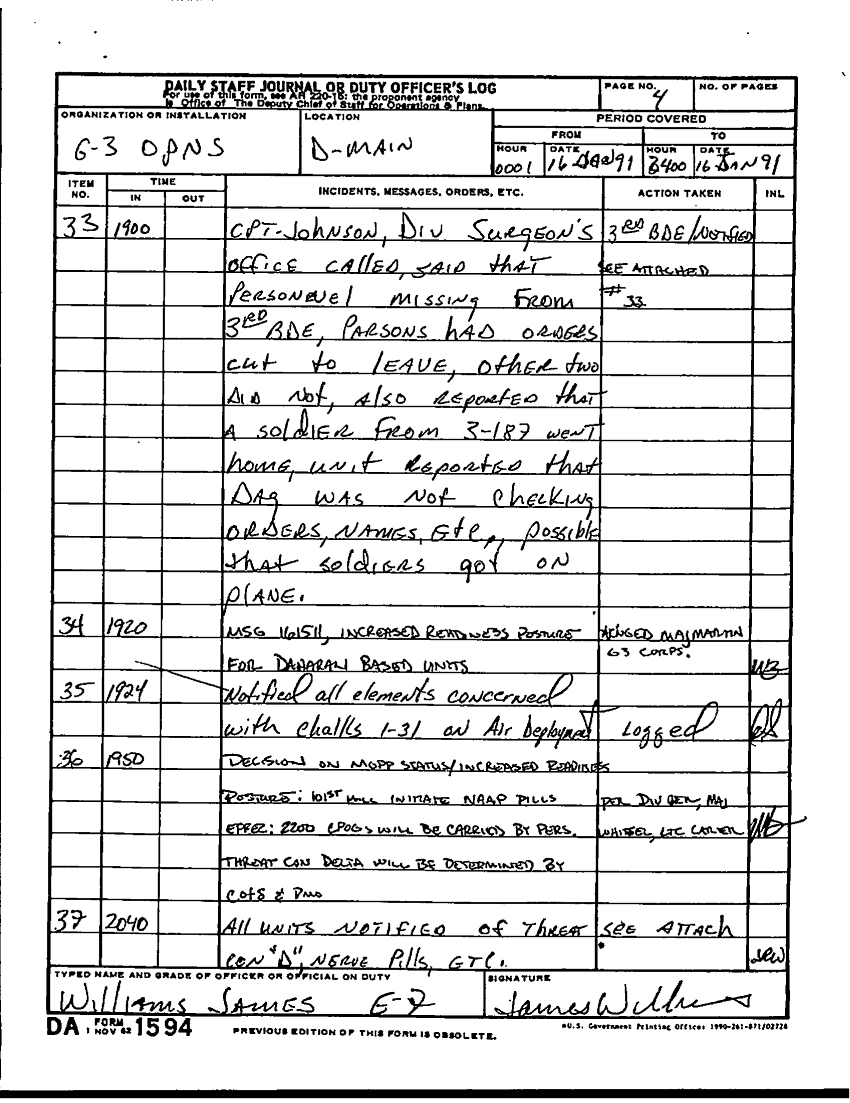 DAILY STAFF JOURNAL OR DUTY OFFICER'S LOG
For use of this form, see AR 220-15; the proponent agency
is Office of The Deputy Chief of Staff for Operations & Plans.
PAGE NO. 4
NO. OF PAGES
ORGANIZATION OR INSTALLATION
G-3 OPNS
LOCATION
D-MAIN
PERIOD COVERED
FROM TO
HOUR DATE HOUR DATE
0001 16 JAN 91 2400 16 JAN 91
ITEM NO. TIME INCIDENTS, MESSAGES, ORDERS, ETC. ACTION TAKEN INL
IN OUT
33 1900 CPT-Johnson, DIV SURGEON'S 3RD BDE/NOTIFIED
OFFICE CALLED, SAID that SEE ATTACHED
PERSONEVEL MISSING FROM # 33
3RD BDE, PARSONS HAD ORDERS
cut to LEAVE, other two
DID Not, Also REPORTED that
A soldIER From 3-187 went
home, unit REPORTED that
DAG WAS NOT CHECKING
ORDERS, NAMES, Etc., possible
that soldIERS got ON
PLANE.
34 1920 MSG 161511, INCREASED READINESS POSTURE MAJ MARTIN
FOR DAHARAN BASED UNITS G3 CORPS.
35 1924 Notified all elements concerned
with chalks 1-31 on Air Deployment Logged
36 1950 DECISION ON MOPP STATUS/INCREASED READINES
POSTURE: 101ST WILL INITIATE NAAP PILLS PER DIV MAJ
EFFEC: 2200 CPOGS WILL BE CARRIED BY PERS. LTC CARVER
THREAT CON DELTA WILL BE DETERMINED BY
COFS &
37 2040 All UNITS NOTIFIED OF THREAT SEE ATTACH
CON "D", NERVE PILLS, ETC. JRW
TYPED NAME AND GRADE OF OFFICER OR OFFICIAL ON DUTY
WIlliAMS JAMES E-7
SIGNATURE
James Williams
DA FORM 1594
1 NOV 62
PREVIOUS EDITION OF THIS FORM IS OBSOLETE.
U.S. Government Printing Office: 1990-261-871/02728